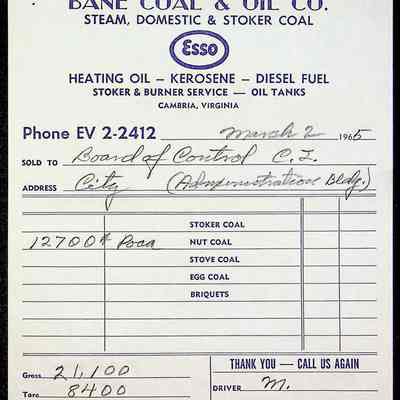 BANE COAL & OIL CO.
STEAM, DOMESTIC & STOKER COAL
Esso
HEATING OIL — KEROSENE — DIESEL FUEL
STOKER & BURNER SERVICE — OIL TANKS
CAMBRIA, VIRGINIA
Phone EV 2-2412 March 2 1965
SOLD TO Board of Control C. I.
ADDRESS City (Administration Bldg.)
STOKER COAL
12700# Poca NUT COAL
STOVE COAL
EGG COAL
BRIQUETS
Gross 21,100 THANK YOU — CALL US AGAIN
Tare 8400 DRIVER M.